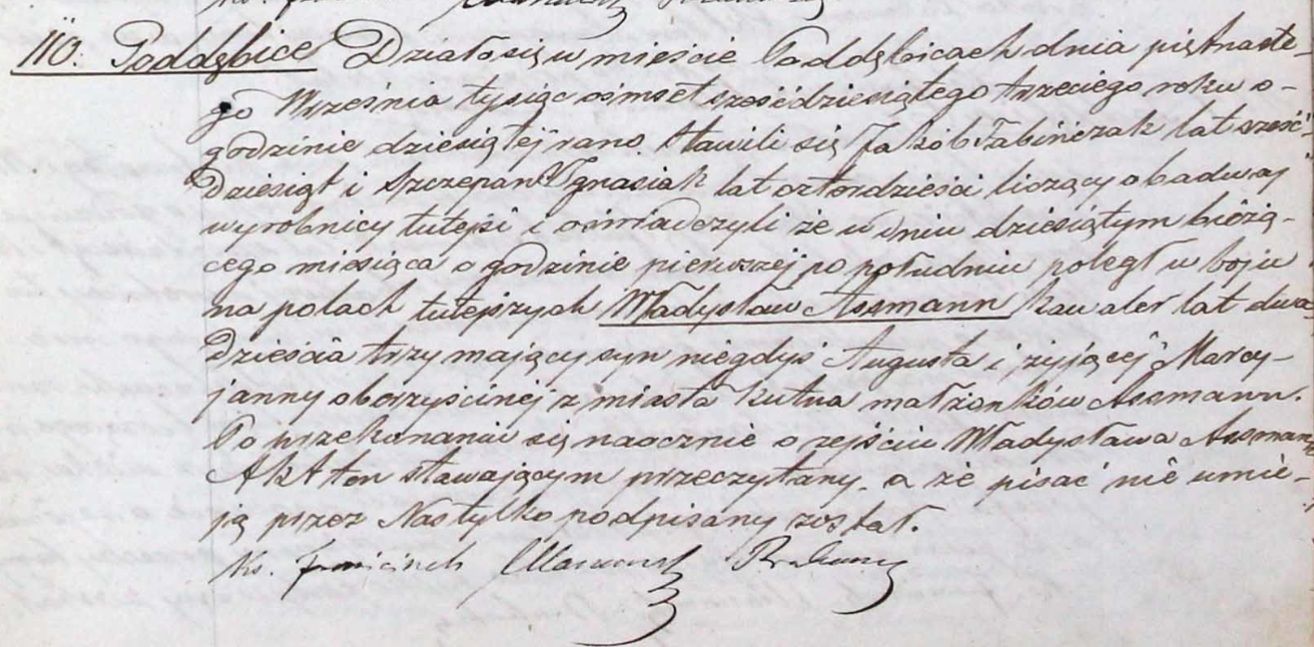 110. Poddębice Działo się w mieście Poddębicach dnia piętnaste-
go Września tysiąc ośmset sześćdziesiątego trzeciego roku o-
godzinie dziesiątej rano. Stawili się Jakób Fabińczak lat sześć-
dziesiąt i Szczepan Ignasiak lat czterdzieści liczący obadwaj
wyrobnicy tutejsi i oświadczyli że w dniu dziesiątym bieżą-
cego miesiąca o godzinie pierwszej po południu poległ w boju
na polach tutejszych Władysław Assmann kawaler lat dwa
dzieścia trzy mający syn niegdyś Augusta i żyjącej Marcy-
janny oberzyścinej z miasta Kutna małżonków Assmann.
Po przekonaniu się naocznie o zejściu Władysława Assmann
Akt ten stawającym przeczytany a że pisać nie umie-
ją przez Nas tylko podpisany został.
Ks.